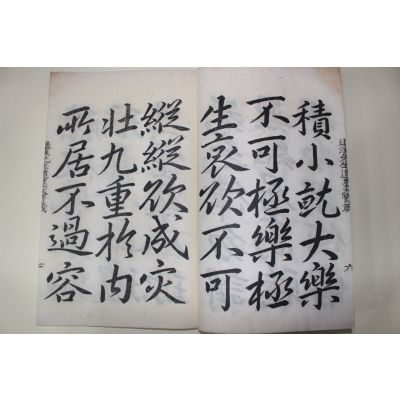 積小就大樂
不可極樂極
生哀欲不可
縱縱欲成灾
壯九重扵内
所居不過容